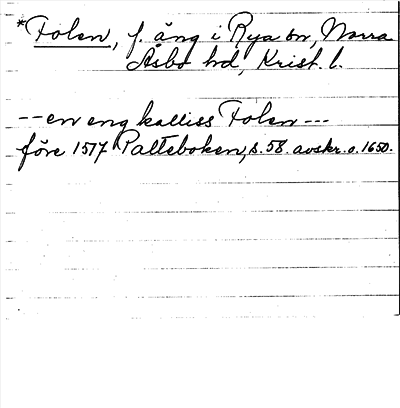 *Folen, f. äng i Rya sn, Norra
Åsbo hd, Krist. l.
--en eng kalliss Folen ---
före 1577 Palteboken, s. 58. avskr. o. 1650.